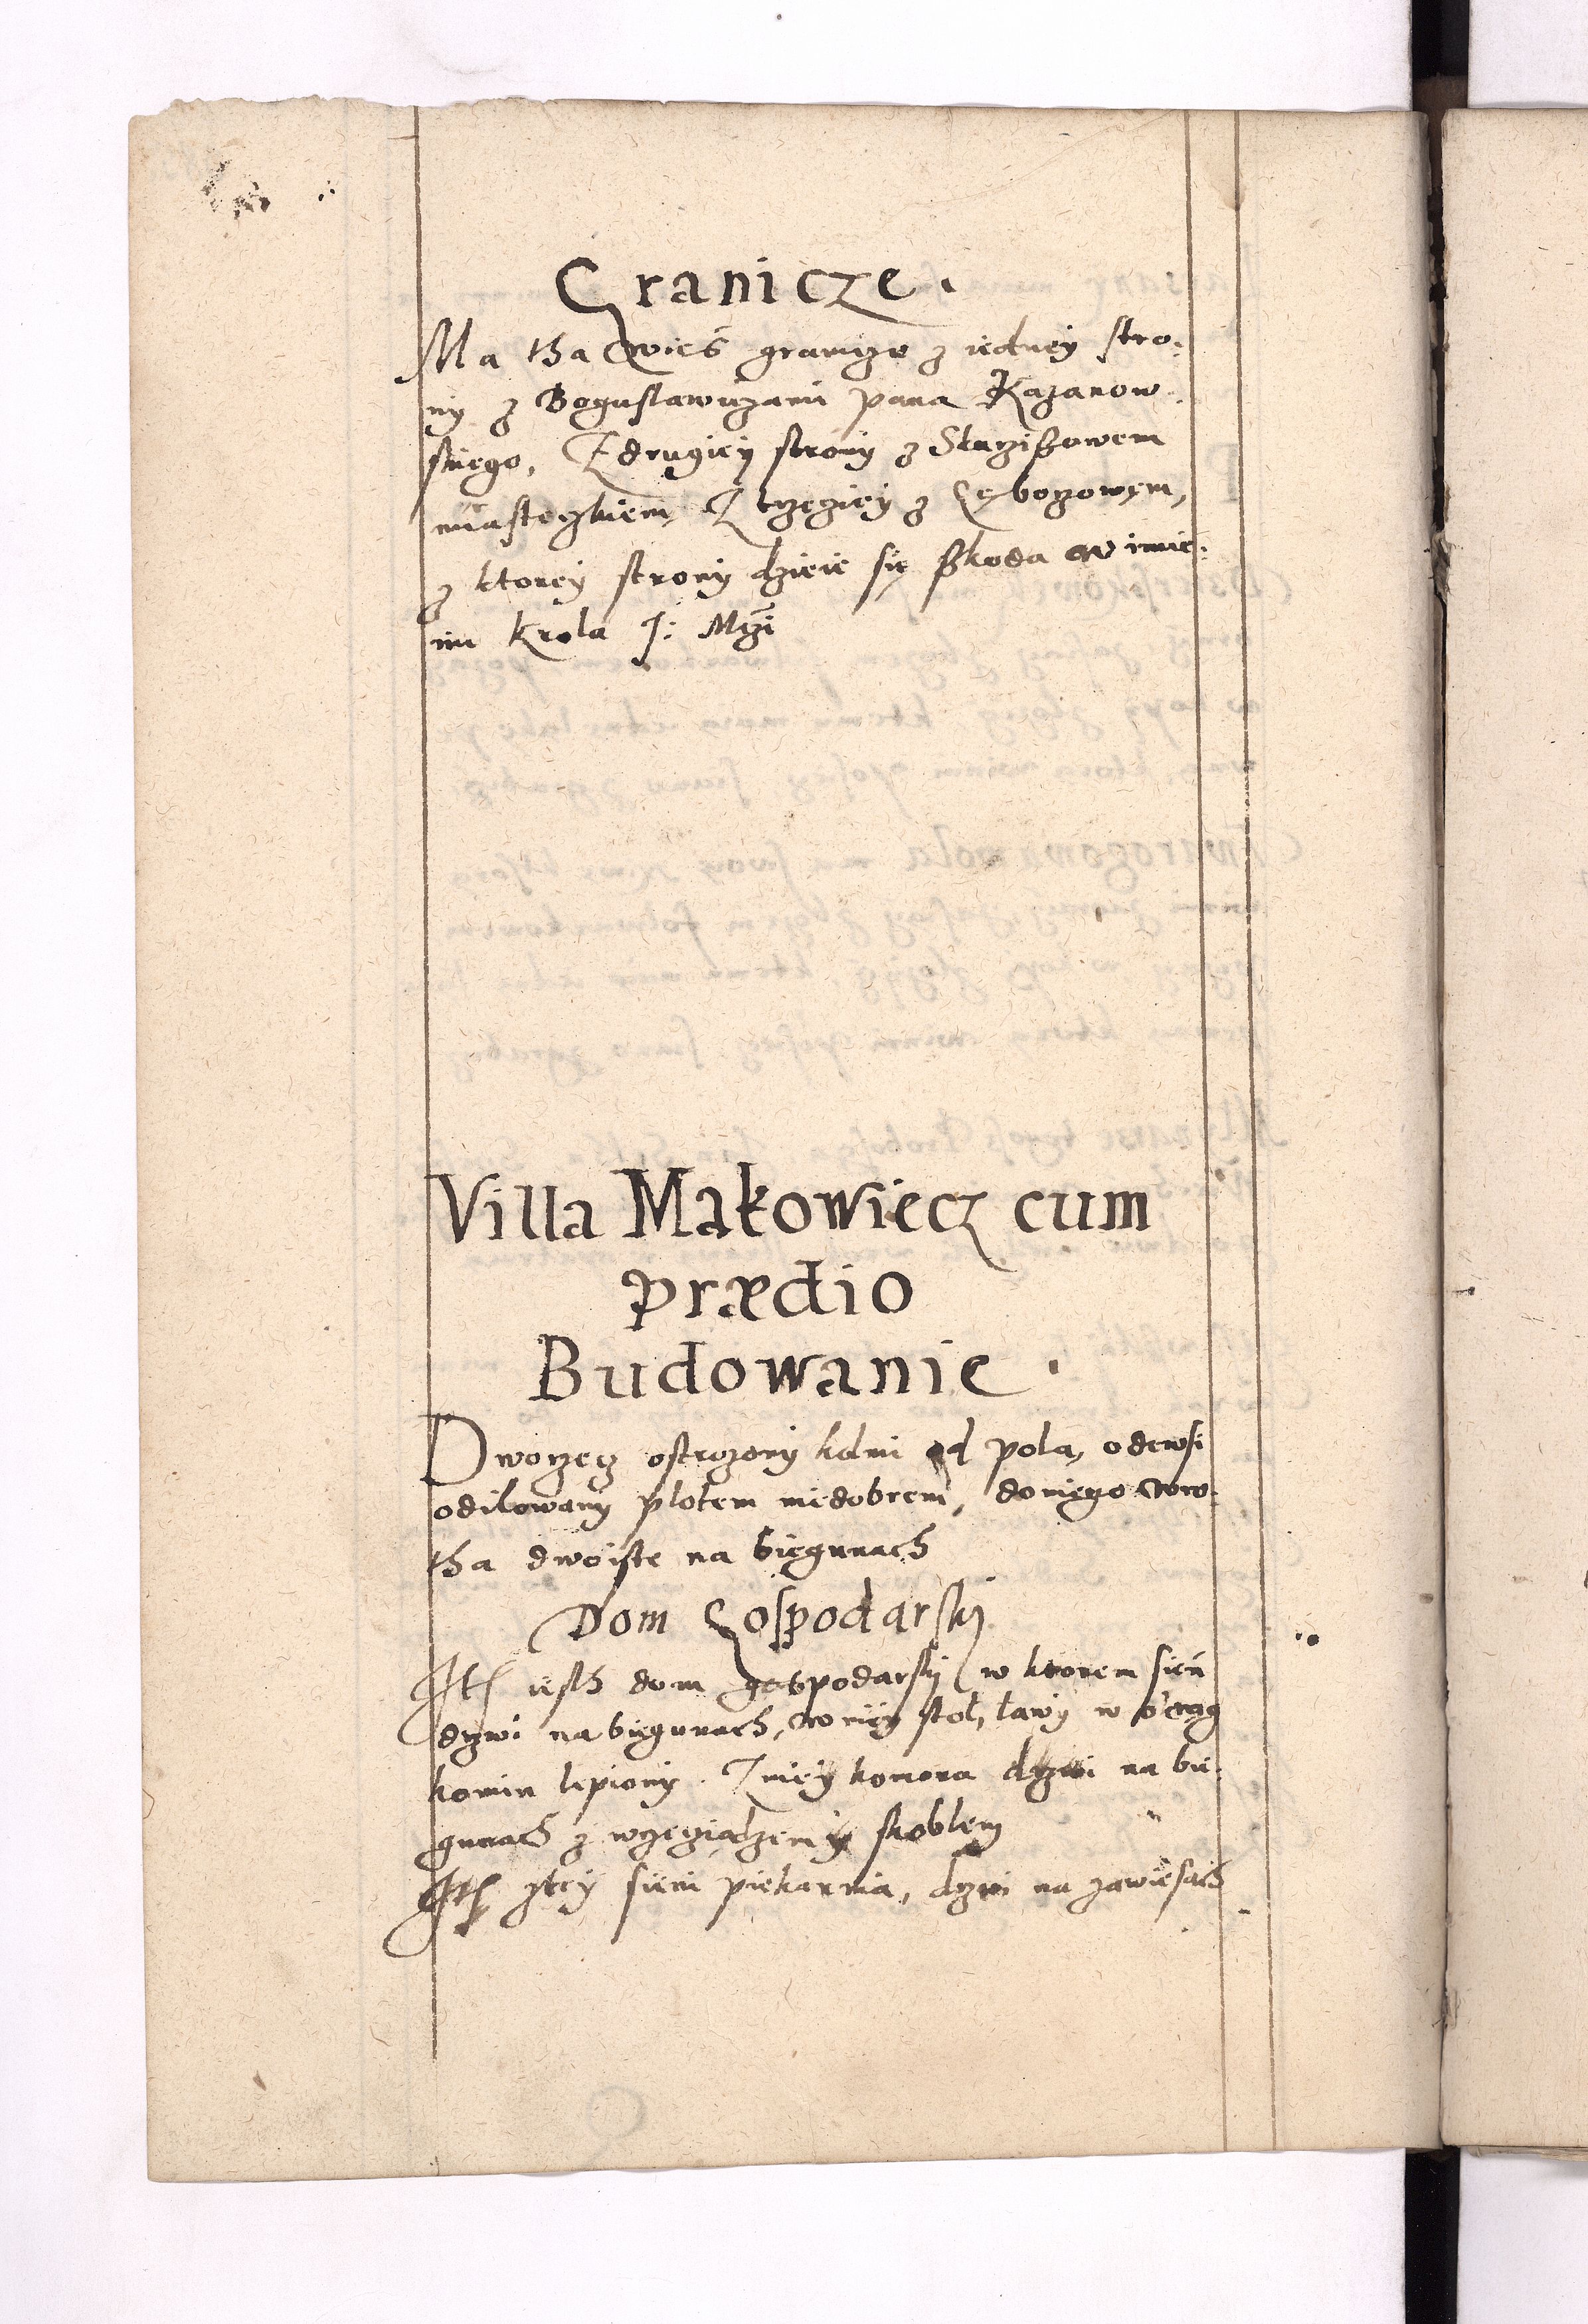 Granicze.
Ma tha wieś granicze z iednei stro:
ny z Boguslawiczami pana Kazanow
skiego, Z drugiey strony z Skariszowem
miasteczkiem, Z trzeciey z
z ktorey strony dzieie się szkoda w imie:
niu Krola J: Mczi
Villa Makowiecz cum
prædio
Budowanie.
Dworzecz ostrozony kolmi od pola, odewsi
odilowany plotem niedobrem, doniego wro
tha dwoiste na biegunach
Dom Gospodarsky
Ité iesth dom gospodarsky w ktorem sień
drzwi na biegunach, w niey stoł, ławy w
komin lepiony. Z niey komora drzwi na bie
gunach z wrzeciądzem y skoblem
Ité ztey sieni piekarnia, drzwi na zawiesach